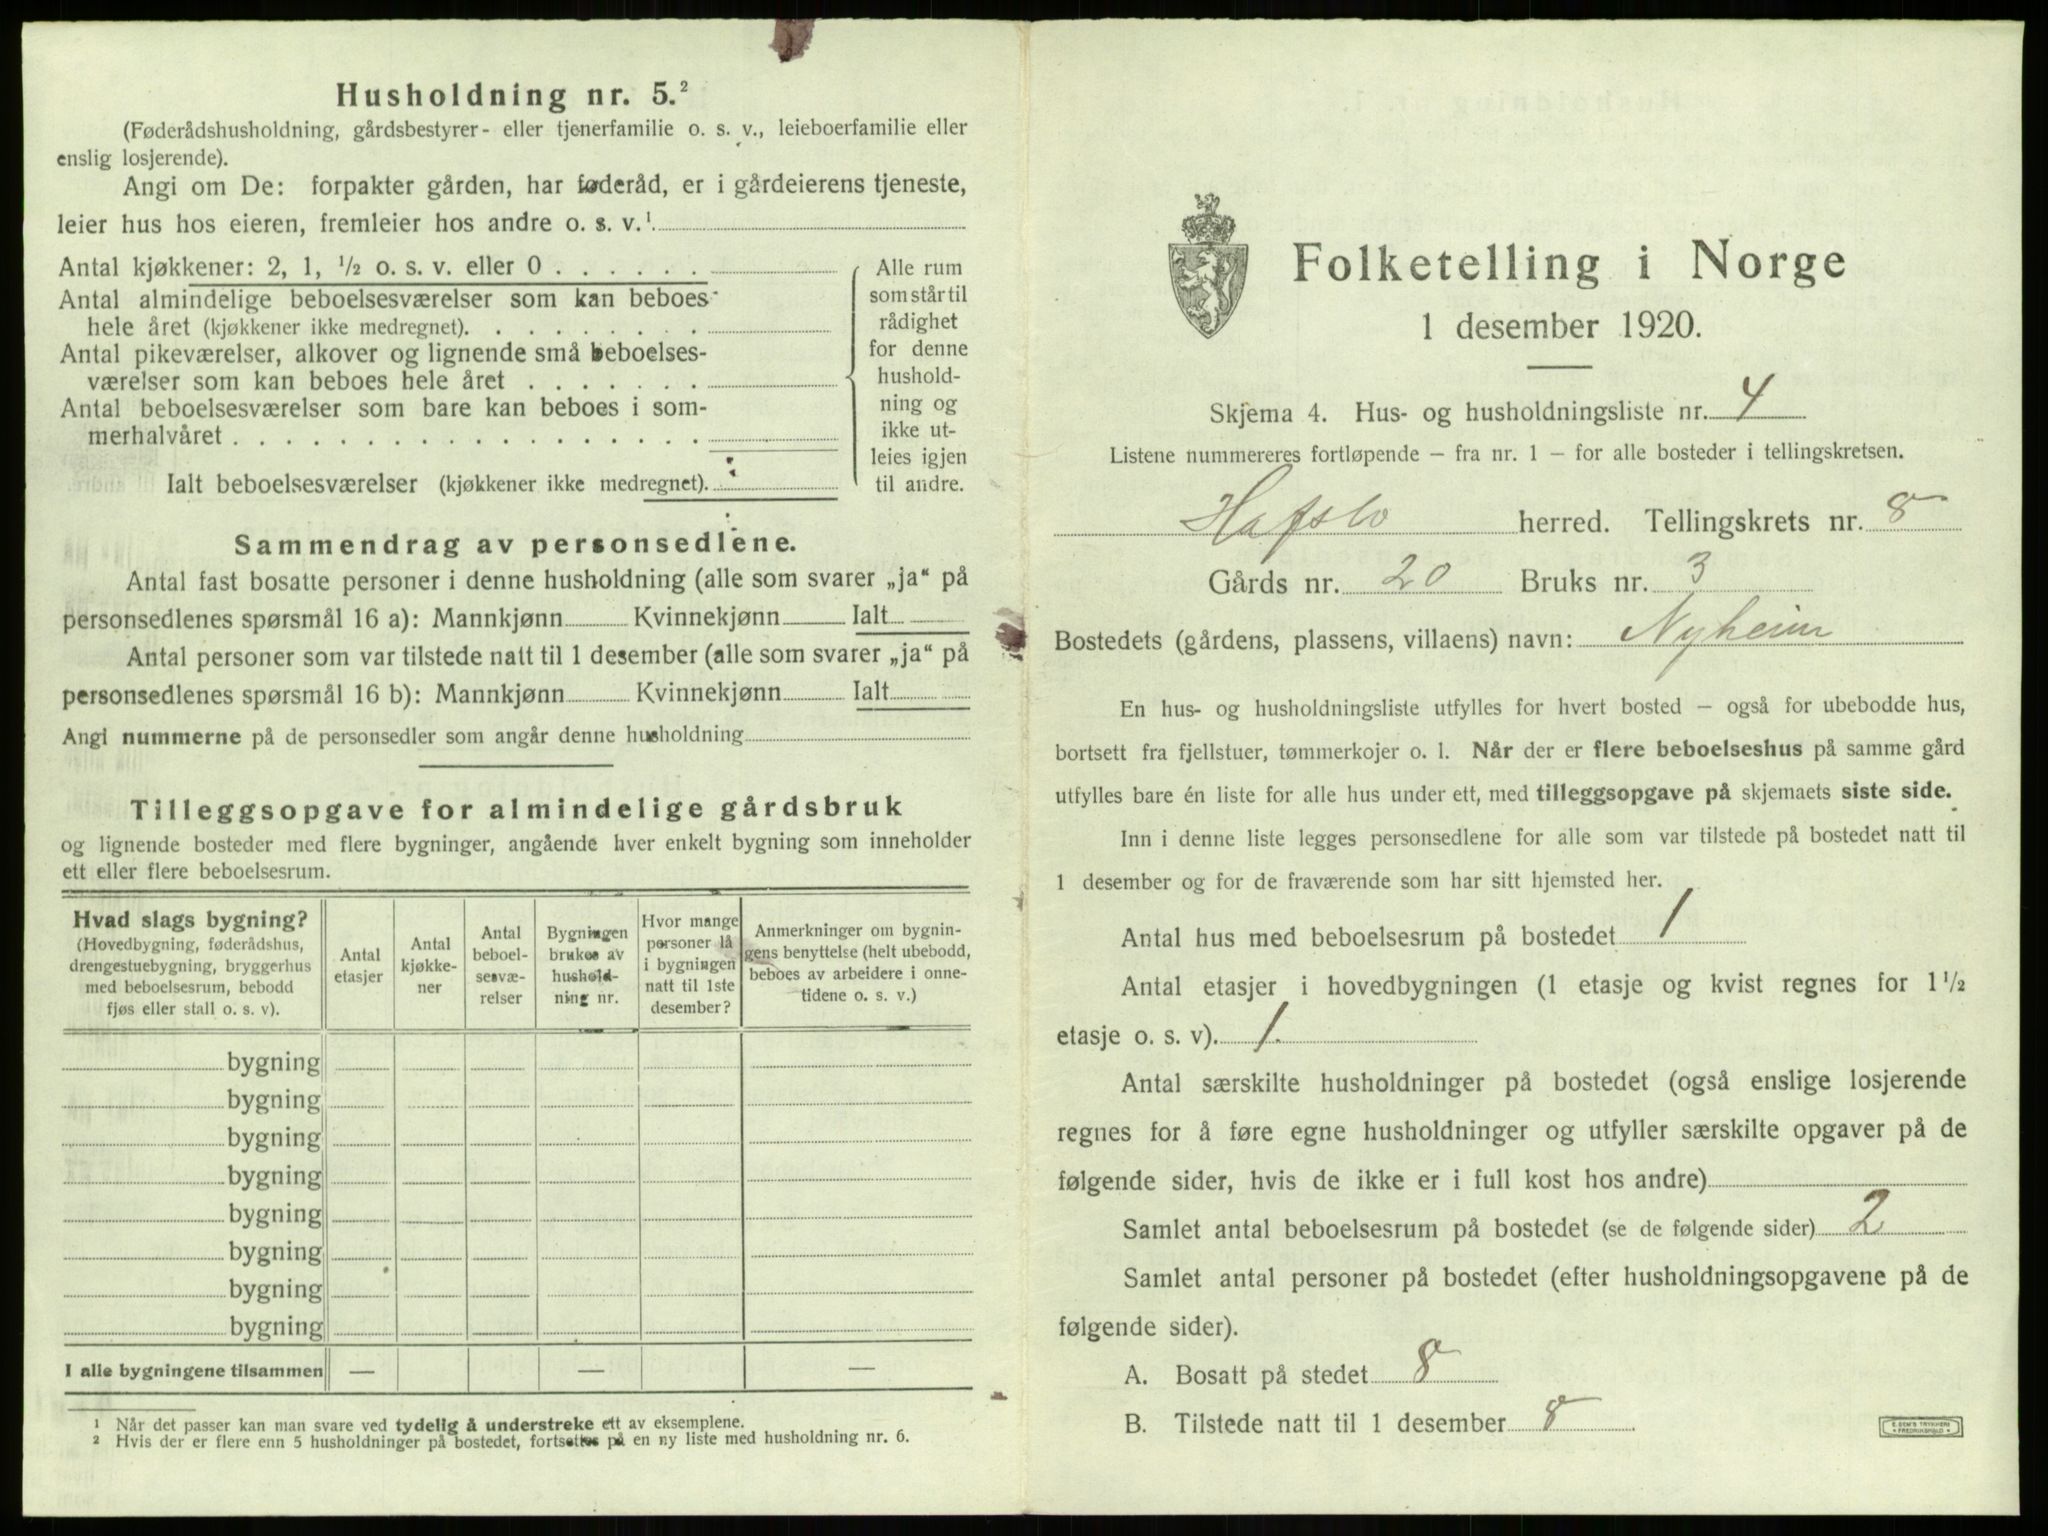 Husholdning nr. 5.²
(Føderådshusholdning, gårdsbestyrer- eller tjenerfamilie o. s. v., leieboerfamilie eller
enslig losjerende).
Angi om De: forpakter gården, har føderåd, er i gårdeierens tjeneste,
leier hus hos eieren, fremleier hos andre o. s. v.¹
Antal kjøkkener: 2, 1, ½ o. s. v. eller 0 . . . . . .
Antal almindelige beboelsesværelser som kan beboes
hele året (kjøkkener ikke medregnet). . . . . . . . .
Antal pikeværelser, alkover og lignende små beboelses-
værelser som kan beboes hele året . . . . . . .
Antal beboelsesværelser som bare kan beboes i som-
merhalvåret . . . . . . . . . . . . . . . . . .
Ialt beboelsesværelser (kjøkkener ikke medregnet).
Alle rum
som står til
rådighet
for denne
hushold-
ning og
ikke ut-
leies igjen
til andre.
Sammendrag av personsedlene.
Antal fast bosatte personer i denne husholdning (alle som svarer „ja“ på
personsedlenes spørsmål 16 a): Mannkjønn Kvinnekjønn Ialt
Antal personer som var tilstede natt til 1 desember (alle som svarer „ja“ på
personsedlenes spørsmål 16 b): Mannkjønn Kvinnekjønn Ialt
Angi nummerne på de personsedler som angår denne husholdning
Tilleggsopgave for almindelige gårdsbruk
og lignende bosteder med flere bygninger, angående hver enkelt bygning som inneholder
ett eller flere beboelsesrum.
Hvad slags bygning?
(Hovedbygning, føderådshus,
drengestuebygning, bryggerhus
med beboelsesrum, bebodd
fjøs eller stall o. s. v).
Antal
etasjer
Antal
kjøkke-
ner
Antal
beboel-
sesvæ-
relser
Bygningen
brukes av
hushold-
ning nr.
Hvor mange
personer lå
i bygningen
natt til 1ste
desember?
Anmerkninger om bygnin-
gens benyttelse (helt ubebodd,
beboes av arbeidere i onne-
tidene o. s. v.)
bygning
bygning
bygning
bygning
bygning
bygning
bygning
bygning
I alle bygningene tilsammen — — —
¹ Når det passer kan man svare ved tydelig å understreke ett av eksemplene.
² Hvis der er flere enn 5 husholdninger på bostedet, fortsettes på en ny liste med husholdning nr. 6.
Folketelling i Norge
1 desember 1920.
Skjema 4. Hus- og husholdningsliste nr. 4
Listene nummereres fortløpende – fra nr. 1 – for alle bosteder i tellingskretsen.
Hafslo herred. Tellingskrets nr. 8
Gårds nr. 20 Bruks nr. 3
Bostedets (gårdens, plassens, villaens) navn: Nyheim
En hus- og husholdningsliste utfylles for hvert bosted – også for ubebodde hus,
bortsett fra fjellstuer, tømmerkojer o. l. Når der er flere beboelseshus på samme gård
utfylles bare én liste for alle hus under ett, med tilleggsopgave på skjemaets siste side.
Inn i denne liste legges personsedlene for alle som var tilstede på bostedet natt til
1 desember og for de fraværende som har sitt hjemsted her.
Antal hus med beboelsesrum på bostedet 1
Antal etasjer i hovedbygningen (1 etasje og kvist regnes for 1½
etasje o. s. v). 1.
Antal særskilte husholdninger på bostedet (også enslige losjerende
regnes for å føre egne husholdninger og utfyller særskilte opgaver på de
følgende sider, hvis de ikke er i full kost hos andre)
Samlet antal beboelsesrum på bostedet (se de følgende sider) 2
Samlet antal personer på bostedet (efter husholdningsopgavene på de
følgende sider).
A. Bosatt på stedet 8
B. Tilstede natt til 1 desember 8
E. SEM'S TRYKKERI
FREDRIKSHALD